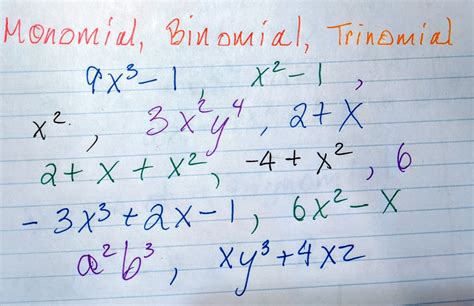 Monomial, Binomial, Trinomial
9x³-1, x²-1,
x², 3x²y⁴, 2+x
2+x+x², -4+x², 6
-3x³+2x-1, 6x²-x
a²b³, xy³+4xz